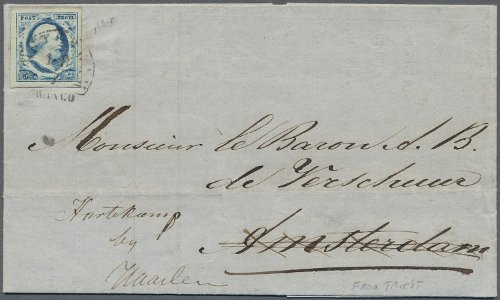 POST ZEGEL
5 C
FRANCO
Monsieur le Baron A. B.
de Verschuer
Amsterdam
Hartekamp
by
Haarlem